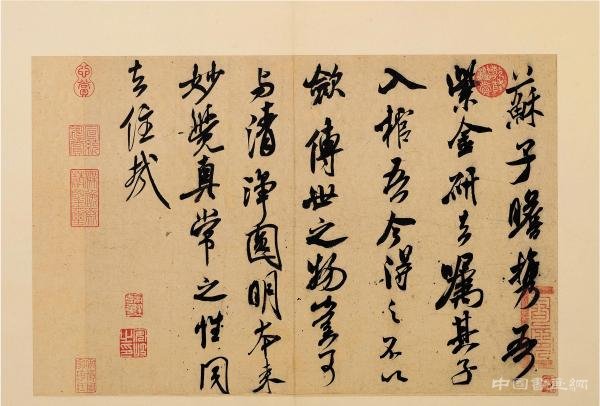 蘇子瞻携吾
紫金研去嘱其子
入棺吾今得之不以
斂傳世之物豈可
与清淨圓明本来
妙覺真常之性同
去住哉
中國書畫網